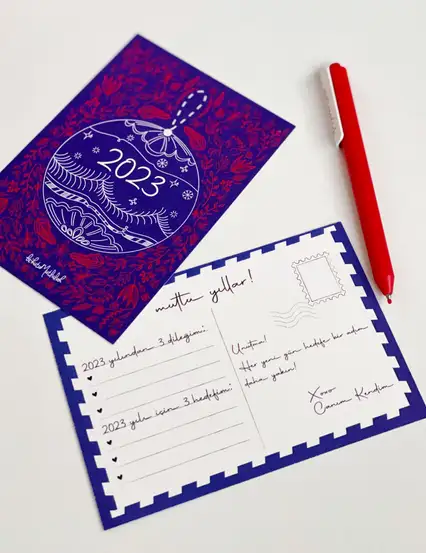 2023
mutlu yıllar!
2023 yılından 3 dileğim:
2023 yılı için 3 hedefim:
Unutma!
Her yeni gün hedefe bir adım
daha yakın!
Xoxo
Canım Kendim